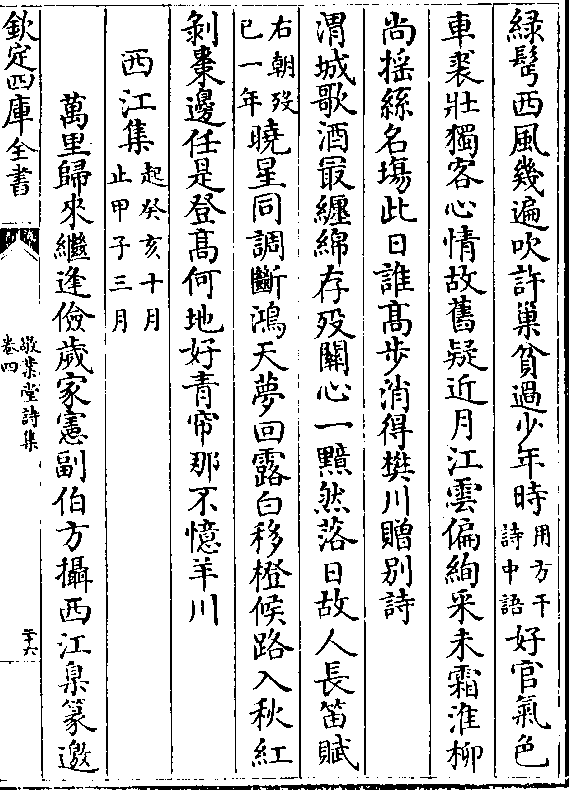 綠鬂西風幾遍吹許巢貧過少年時用方干詩中語好官氣色
車裘壯獨客心情故舊疑近月江雲偏絢采未霜淮柳
尚揺絲名塲此日誰髙步消得樊川贈别詩
渭城歌酒最纒綿存殁關心一黯然落日故人長笛賦
右朝殁已一年曉星同調斷鴻天夢回露白移橙候路入秋紅
剝棗邊任是登髙何地好青帘那不憶羊川
西江集起癸亥十月止甲子三月
萬里歸來繼逢儉歲家憲副伯方攝西江臬篆邀
欽定四庫全書
敬業堂詩集
卷四
二十六